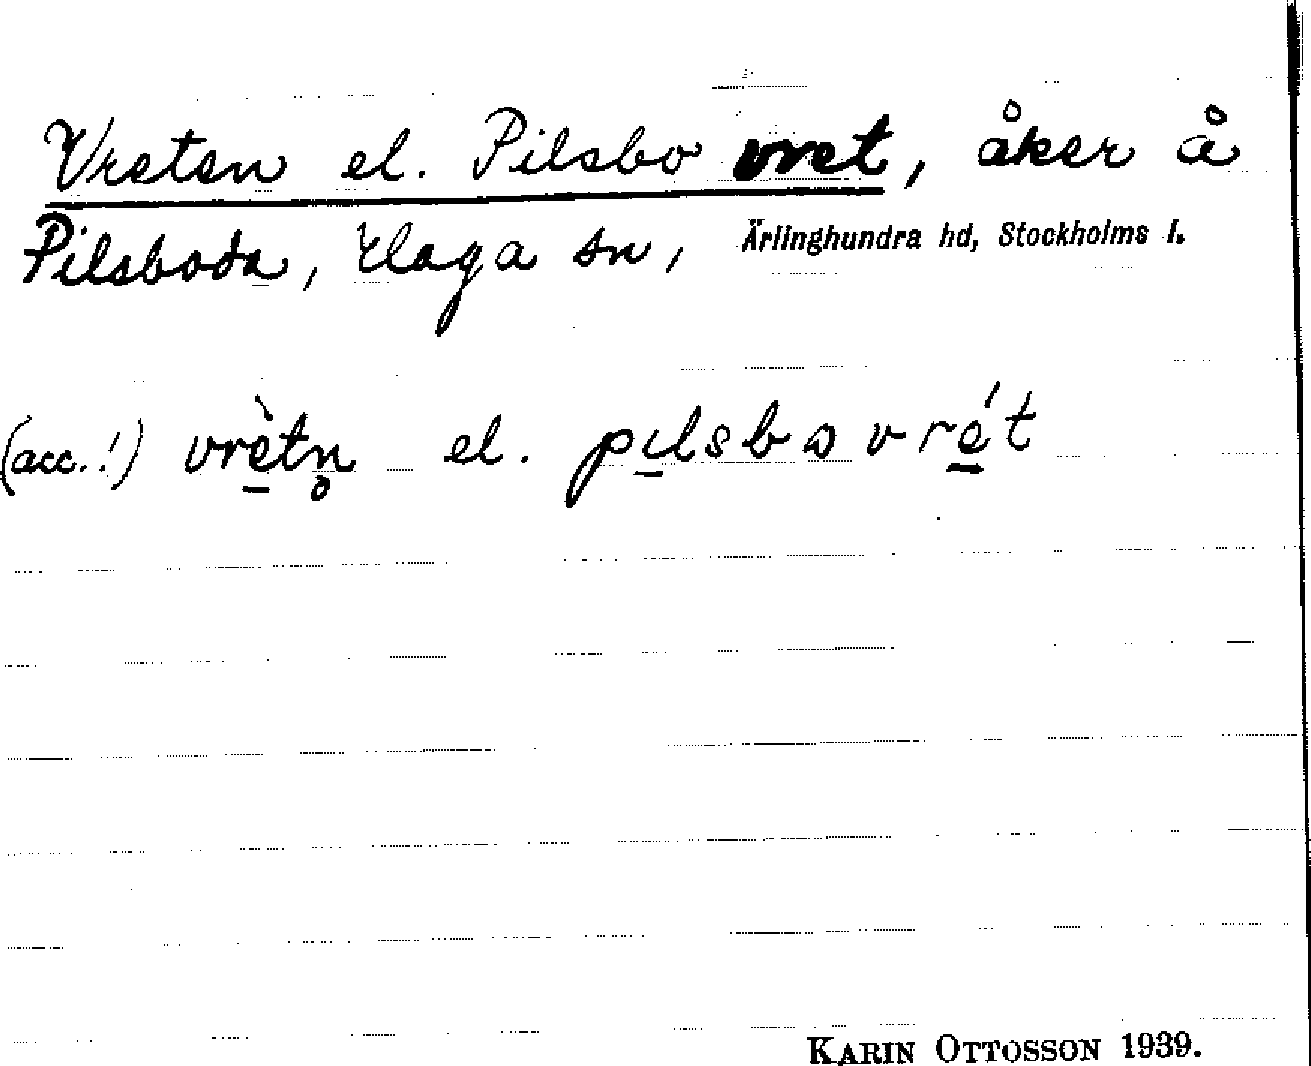 Vreten el. Pilsbo vret, åker å
Pilsboda, Haga sn, Ärlinghundra hd, Stockholms l.
(acc.!) vrètn̥ el. pi̱lsbɷvré̱t
KARIN OTTOSSON 1939.